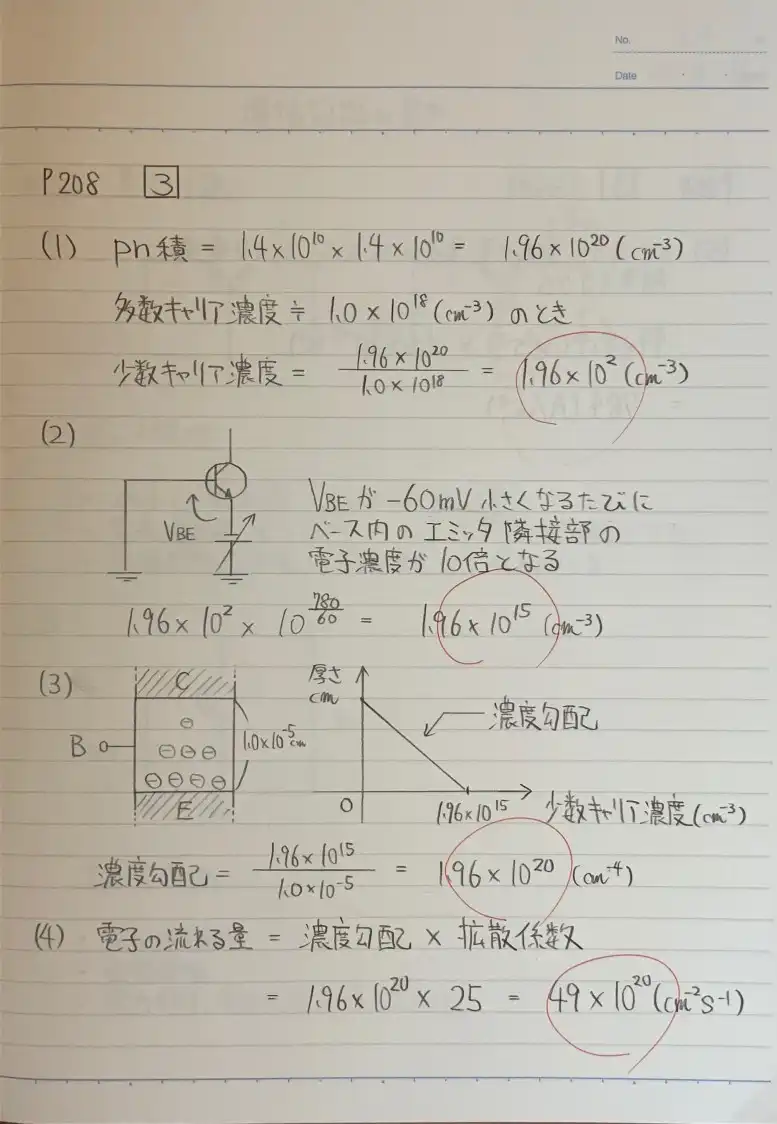 No.
Date
P208 3
(1) pn積 = 1.4×10¹⁰ × 1.4×10¹⁰ = 1.96×10²⁰ (cm⁻³)
多数キャリア濃度 ≒ 1.0×10¹⁸ (cm⁻³) のとき
少数キャリア濃度 = 1.96×10²⁰ / 1.0×10¹⁸ = 1.96×10² (cm⁻³)
(2)
VBE
VBEが -60mV 小さくなるたびに
ベース内のエミッタ隣接部の
電子濃度が 10倍となる
1.96×10² × 10^(780/60) = 1.96×10¹⁵ (cm⁻³)
(3)
C
B
E
⊖
⊖⊖⊖
⊖⊖⊖⊖
1.0×10⁻⁵cm
厚さ
cm
濃度勾配
0
1.96×10¹⁵
少数キャリア濃度(cm⁻³)
濃度勾配 = 1.96×10¹⁵ / 1.0×10⁻⁵ = 1.96×10²⁰ (cm⁻⁴)
(4) 電子の流れる量 = 濃度勾配 × 拡散係数
= 1.96×10²⁰ × 25 = 49×10²⁰ (cm⁻²s⁻¹)